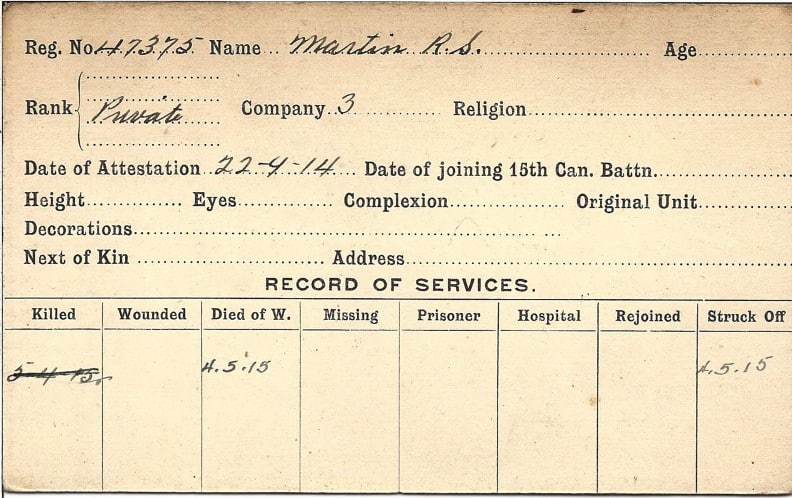 Reg. No. 47375 Name Martin R.S. Age
Rank Private Company 3 Religion
Date of Attestation 22-9-14 Date of joining 15th Can. Battn.
Height Eyes Complexion Original Unit
Decorations
Next of Kin Address
RECORD OF SERVICES.
Killed Wounded Died of W. Missing Prisoner Hospital Rejoined Struck Off
5-4-15. 4.5.15 4.5.15